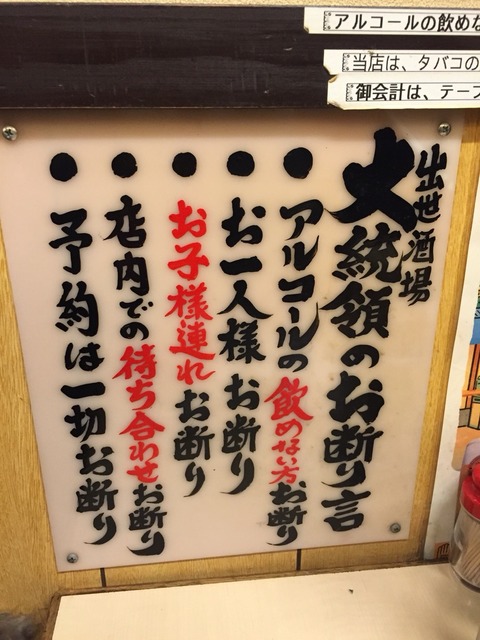 アルコールの飲めな
当店は、タバコの
御会計は、テーブ
出世酒場
大統領のお断り言
● アルコールの飲めない方お断り
● お一人様お断り
● お子様連れお断り
● 店内での待ち合わせお断り
● 予約は一切お断り